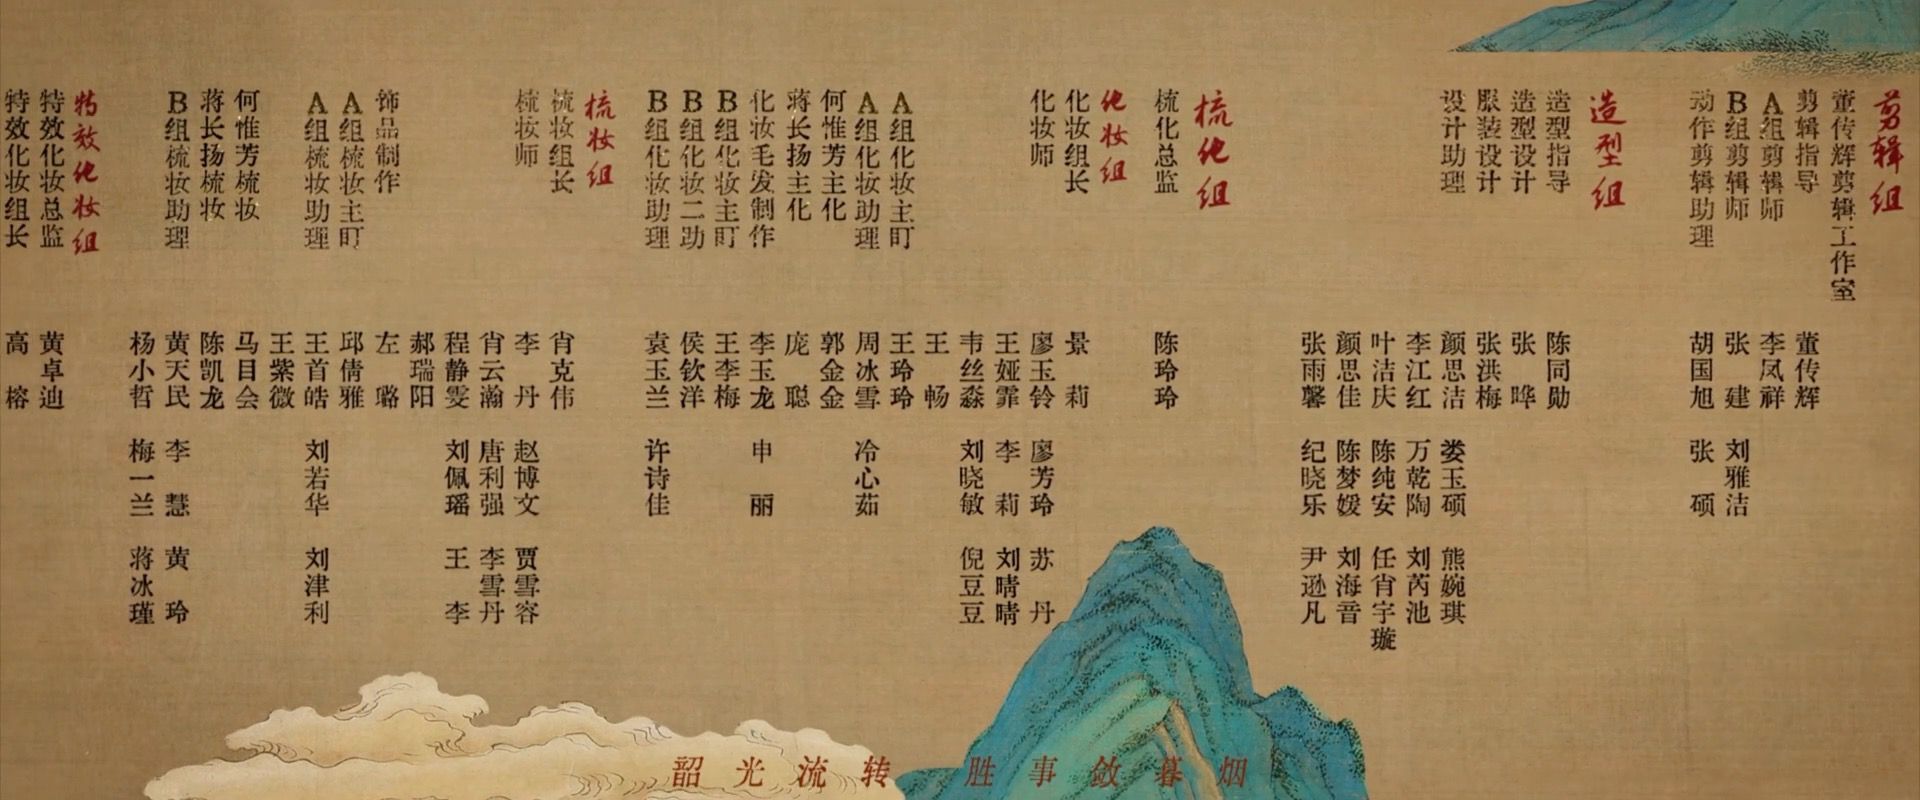 剪辑组
董传辉剪辑工作室
剪辑指导 董传辉
A组剪辑师 李凤祥
B组剪辑师 张建 刘雅洁
动作剪辑助理 胡国旭 张硕
造型组
造型指导 陈同勋
造型设计 张晔
服装设计 张洪梅
设计助理 颜思洁 娄玉硕 熊婉琪
李江红 万乾陶 刘芮池
叶洁庆 陈纯安 任肖宇璇
颜思佳 陈梦媛 刘海音
张雨馨 纪晓乐 尹逊凡
梳化组
梳化总监 陈玲玲
化妆组
化妆组长 景莉
化妆师 廖玉铃 廖芳玲 苏丹
王娅霏 李莉 刘晴晴
韦丝淼 刘晓敏 倪豆豆
王畅
A组化妆主盯 王玲玲
A组化妆助理 周冰雪 冷心茹
何惟芳主化 郭金金
蒋长扬主化 庞聪
化妆毛发制作 李玉龙 申丽
B组化妆主盯 王李梅
B组化妆二助 侯钦洋
B组化妆助理 袁玉兰 许诗佳
梳妆组
梳妆组长 肖克伟
梳妆师 李丹 赵博文 贾雪容
肖云瀚 唐利强 李雪丹
程静雯 刘佩瑶 王李
郝瑞阳
饰品制作 左璐
A组梳妆主盯 邱倩雅
A组梳妆助理 王首皓 刘若华 刘津利
王紫微
何惟芳梳妆 马目会
蒋长扬梳妆 陈凯龙
B组梳妆助理 黄天民 李慧 黄玲
杨小哲 梅一兰 蒋冰瑾
特效化妆组
特效化妆总监 黄卓迪
特效化妆组长 高榕
韶光流转 胜事敛暮烟